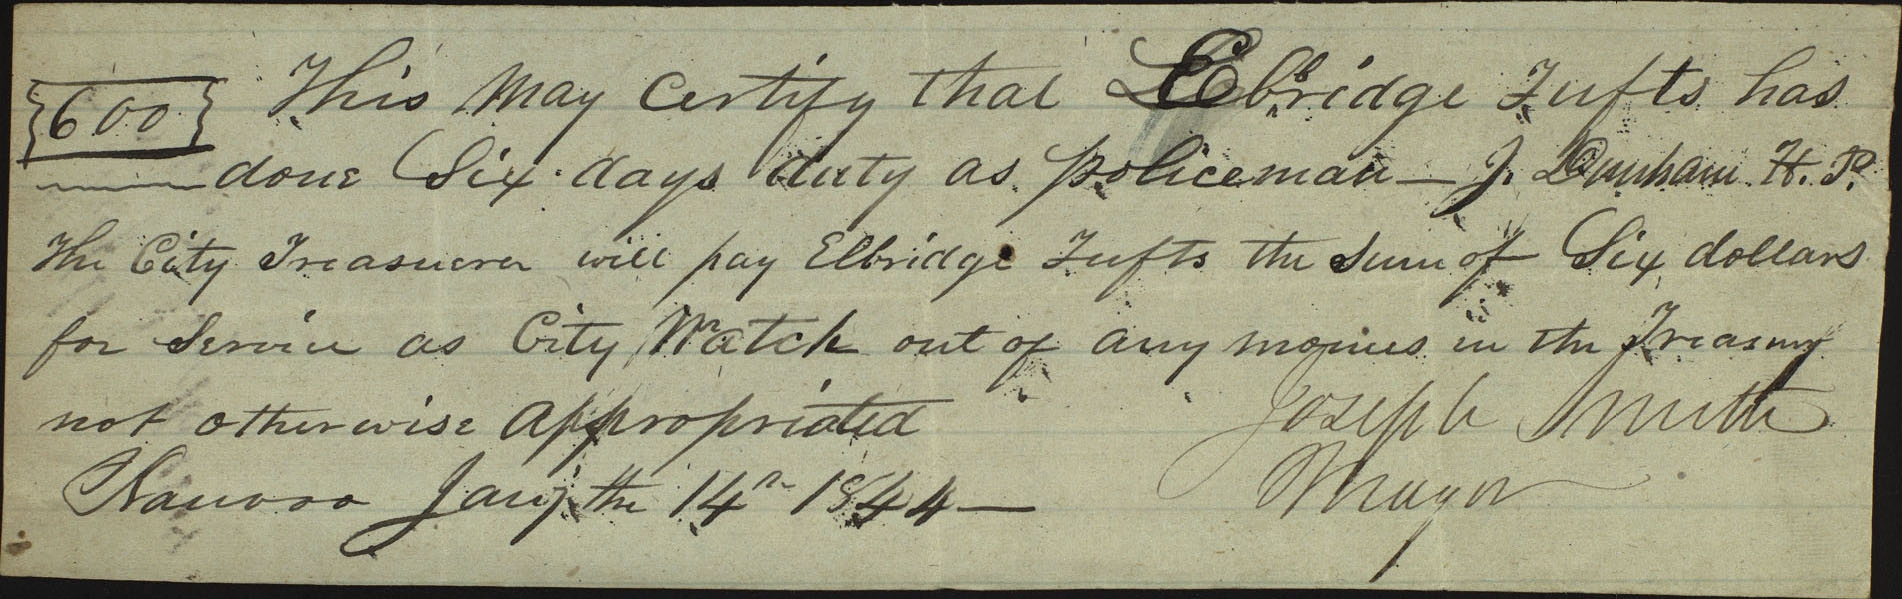 {600} This may certify that Elbridge Tufts has
done Six days duty as policeman — J. Dunham H. P.
The City Treasurer will pay Elbridge Tufts the sum of Six dollars
for Service as City Watch out of any monies in the Treasury
not otherwise appropriated
Joseph Smith
Nauvoo Jany the 14th 1844 —
Mayor